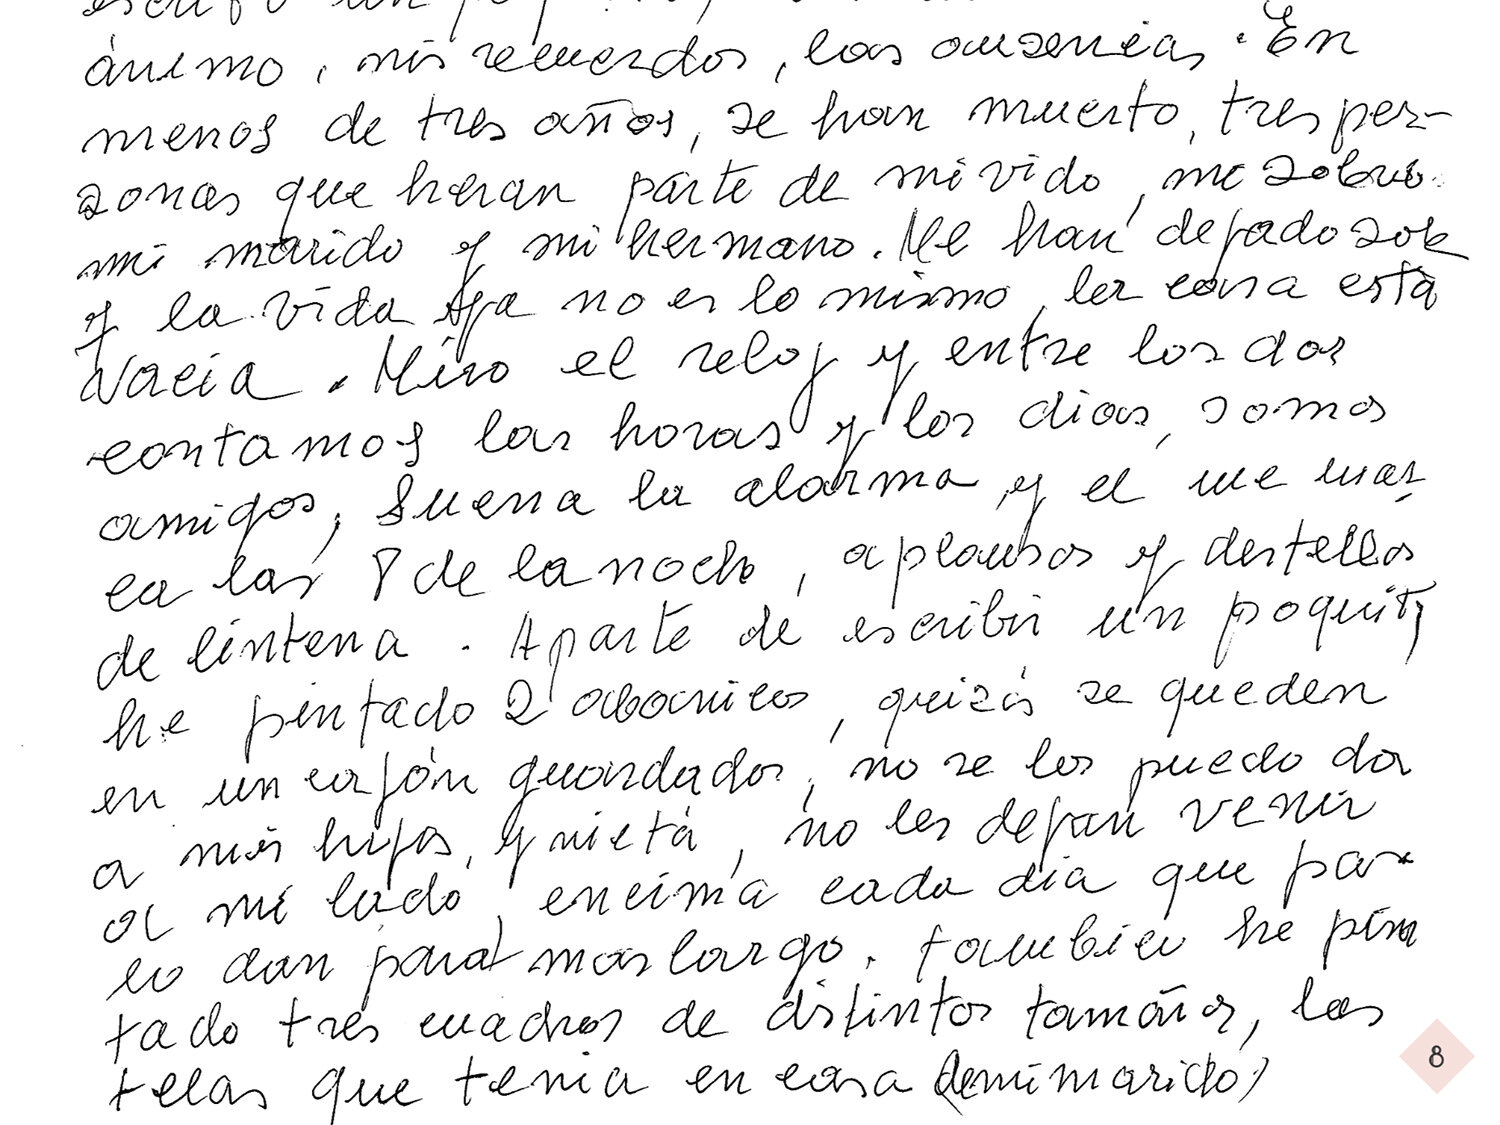 escribo un
ánimo, mis recuerdos, las ausencias. En
menos de tres años, se han muerto, tres per-
sonas que heran parte de mi vida, mi
mi marido y mi hermano. Me han dejado sola
y la vida ya no es lo mismo, la casa está
Vacia. Miro el reloj y entre los dos
contamos las horas y los dias, somos
amigos, Suena la alarma y el me mar
ca las 8 de la noche, aplausos y destellos
de lintena. Aparte de escribir un poquito
he pintado 2 abanicos, quizás se queden
en un cajón guardados, no se los puedo dar
a mis hijos, y nieta, no les dejan venir
a mi lado, encima cada dia que pa-
so dan para mas largo. tambien he pin
tado tres cuadros de distintos tamaños, las
telas que tenia en casa (de mi marido)
8